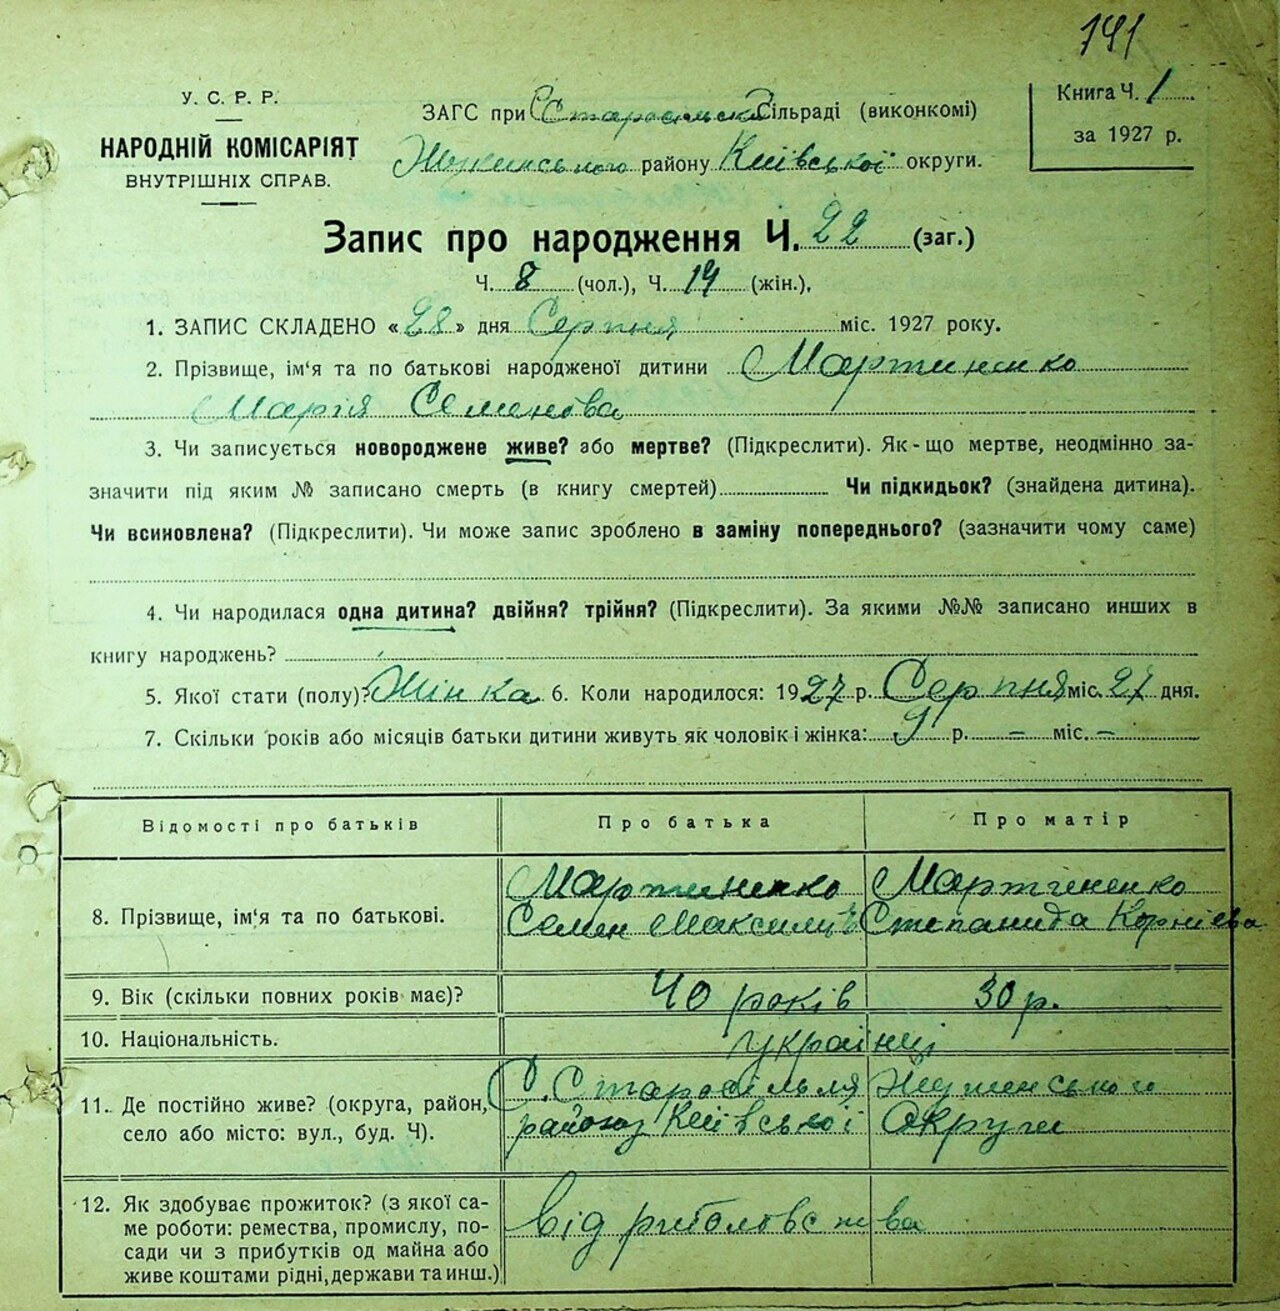 141
У. С. Р. Р.
НАРОДНІЙ КОМІСАРІЯТ
ВНУТРІШНІХ СПРАВ.
ЗАГС при Старосільск Сільраді (виконкомі)
Жукинського району Київської округи.
Книга Ч. 1
за 1927 р.
Запис про народження Ч. 22 (заг.)
Ч. 8 (чол.), Ч. 14 (жін.),
1. ЗАПИС СКЛАДЕНО «28» дня Серпня міс. 1927 року.
2. Прізвище, ім‘я та по батькові народженої дитини Мартиненко
Марія Семенова
3. Чи записується новороджене живе? або мертве? (Підкреслити). Як-що мертве, неодмінно за-
значити під яким № записано смерть (в книгу смертей) Чи підкидьок? (знайдена дитина).
Чи всиновлена? (Підкреслити). Чи може запис зроблено в заміну попереднього? (зазначити чому саме)
4. Чи народилася одна дитина? двійня? трійня? (Підкреслити). За якими №№ записано инших в
книгу народжень?
5. Якої стати (полу)? Жінка 6. Коли народилося: 1927 р. Серпня міс. 27 дня.
7. Скільки років або місяців батьки дитини живуть як чоловік і жінка: 9 р. – міс. –
Відомості про батьків Про батька Про матір
8. Прізвище, ім‘я та по батькові. Мартиненко Мартиненко
Семен Максимів Степанида Корніева
9. Вік (скільки повних років має)? 40 років 30 р.
10. Національність. українці
11. Де постійно живе? (округа, район, С. Старосілля Жукинського
село або місто: вул., буд. Ч). району Київської Округи
12. Як здобуває прожиток? (з якої са-
ме роботи: ремества, промислу, по- від риболовства
сади чи з прибутків од майна або
живе коштами рідні, держави та инш.)